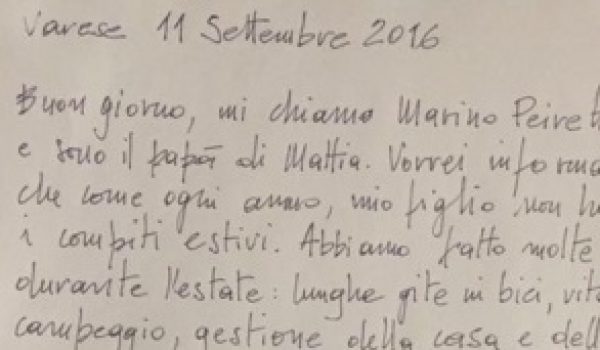 Varese 11 Settembre 2016
Buon giorno, mi chiamo Marino
e sono il papà di Mattia. Vorrei
che come ogni anno, mio figlio non
i compiti estivi. Abbiamo fatto molte
durante l'estate: lunghe gite in bici,
campeggio, gestione della casa e